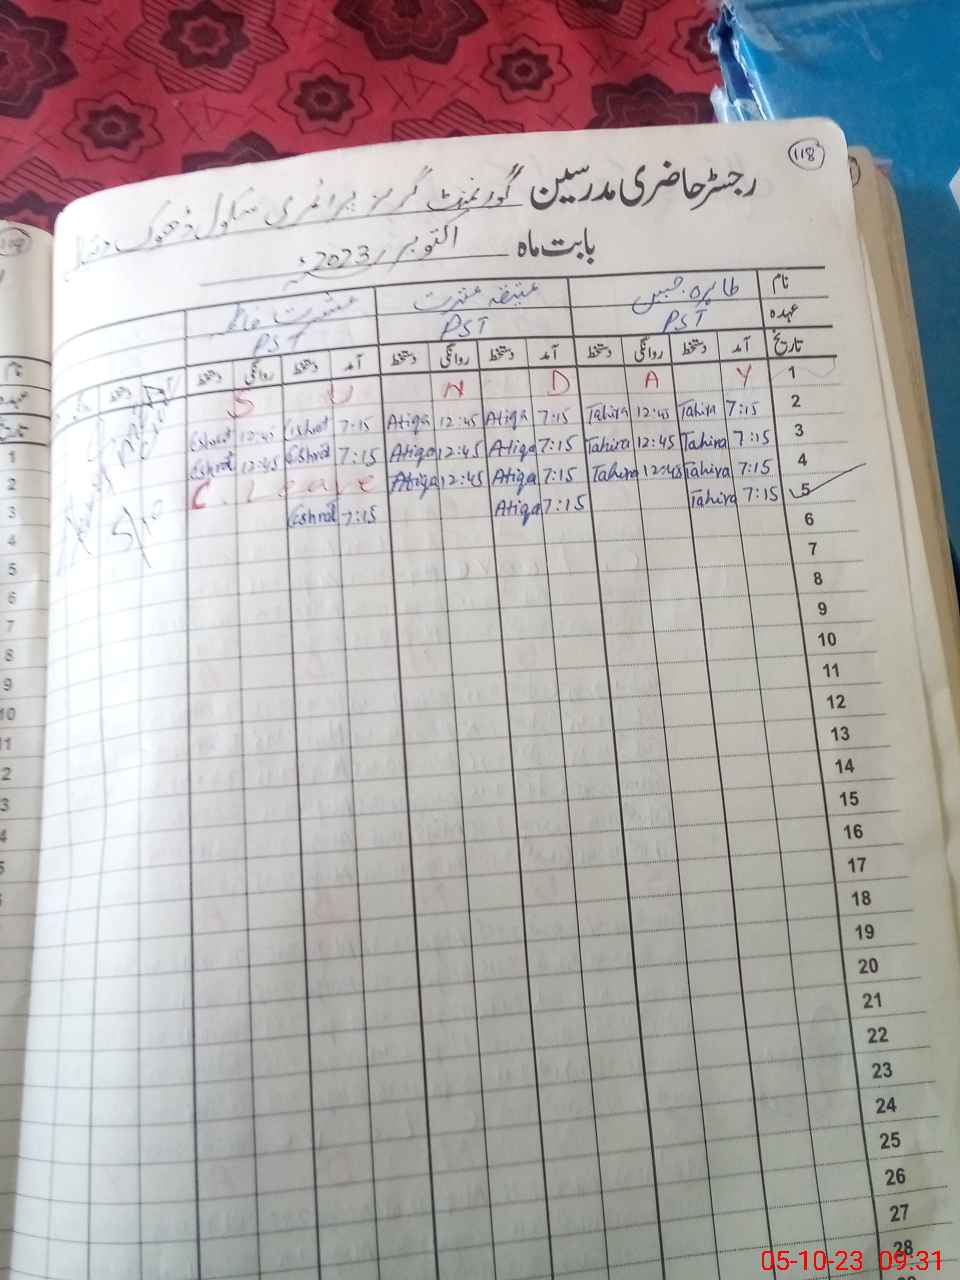 118
رجسٹر حاضری مدرسین گورنمنٹ گرلز پرائمری سکول ڈھوک
بابت ماہ اکتوبر 2023ء
نام طاہرہ جبیں عتیقہ عشرت عشرت فاطمہ
عہدہ PST PST PST
تاریخ آمد دستخط روانگی دستخط آمد دستخط روانگی دستخط آمد دستخط روانگی دستخط
S U N D A Y 1
Eshrat 12:45 Eshrat 7:15 Atiqa 12:45 Atiqa 7:15 Tahira 12:45 Tahira 7:15 2
Eshrat 12:45 Eshrat 7:15 Atiqa 12:45 Atiqa 7:15 Tahira 12:45 Tahira 7:15 3
C. Leave Atiqa 12:45 Atiqa 7:15 Tahira 12:45 Tahira 7:15 4
Eshrat 7:15 Atiqa 7:15 Tahira 7:15 5
6
7
8
9
10
11
12
13
14
15
16
17
18
19
20
21
22
23
24
25
26
27
28
05-10-23 09:31